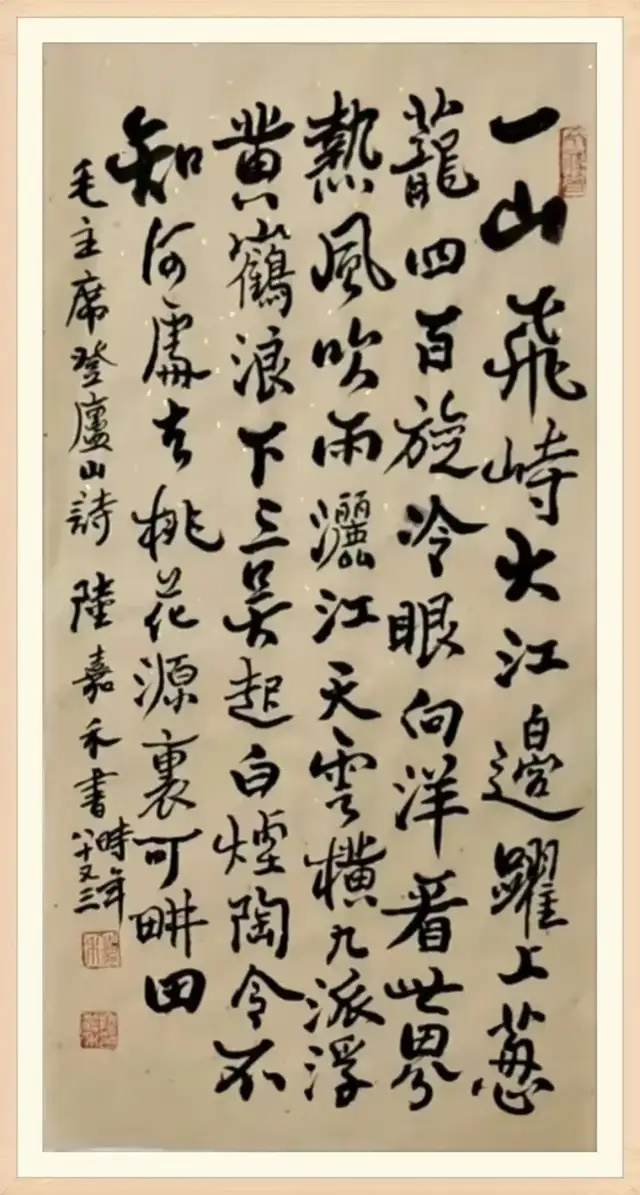 一山飛峙大江邊躍上葱
蘢四百旋冷眼向洋看世界
熱風吹雨灑江天雲橫九派浮
黃鶴浪下三吳起白煙陶令不
知何處去桃花源裏可畊田
毛主席登廬山詩 陸嘉禾書 時年八十又三